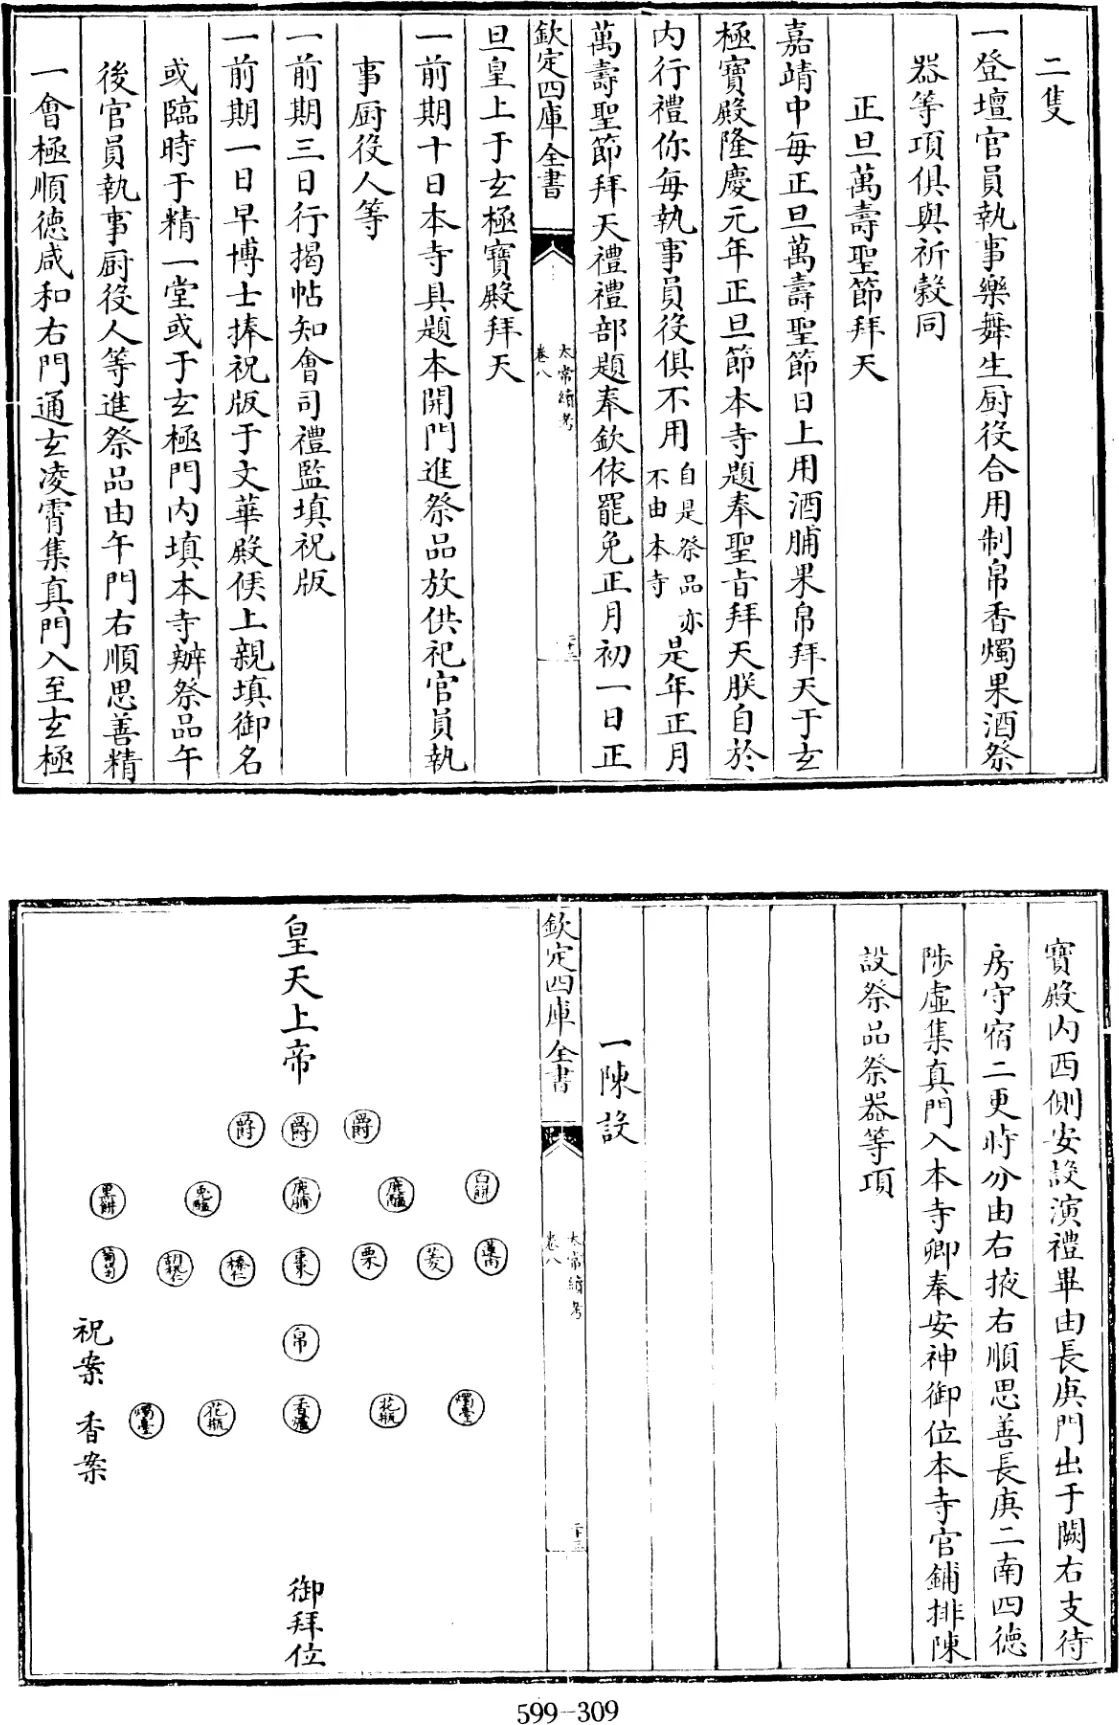 二隻
一登壇官員執事樂舞生厨役合用制帛香燭果酒祭
器等項俱與祈穀同
正旦萬壽聖節拜天
嘉靖中每正旦萬壽聖節日上用酒脯果帛拜天于玄
極寶殿隆慶元年正旦節本寺題奉聖旨拜天朕自於
内行禮你每執事員役俱不用自是祭品亦不由本寺是年正月
萬壽聖節拜天禮禮部題奉欽依罷免正月初一日正
欽定四庫全書
太常續考
卷八
旦皇上于玄極寶殿拜天
一前期十日本寺具題本開門進祭品放供祀官員執
事厨役人等
一前期三日行揭帖知會司禮監填祝版
一前期一日早博士捧祝版于文華殿候上親填御名
或臨時于精一堂或于玄極門内填本寺辦祭品午
後官員執事厨役人等進祭品由午門右順思善精
一會極順德咸和右門通玄凌霄集真門入至玄極
寶殿内西側安設演禮畢由長庚門出于闕右支待
房守宿二更時分由右掖右順思善長庚二南四德
陟虛集真門入本寺卿奉安神御位本寺官鋪排陳
設祭品祭器等項
一陳設
欽定四庫全書
太常續考
卷八
皇天上帝
爵 爵 爵
白餅 鹿醢 鹿脯 兎醢 黑餅
蓮肉 菱 栗 棗 榛仁 胡桃仁 葡萄
帛
燭臺 花瓶 香爐 花瓶 燭臺
祝案 香案
御拜位
599-309